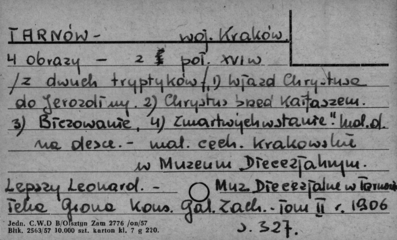 TARNÓW - woj. Kraków.
4 obrazy - 2 poł. XVI w
/z dwuch tryptyków/, 1) Wjazd Chrystusa
do Jerozolimy. 2) Chrystus przed Kaifaszem.
3) Biczowanie, 4) Zmartwychwstanie" mal. d.
na desce. - mal. cech. Krakowskie
w Muzeum Diecezjalnym.
Lepszy Leonard. - Muz. Diecezjalne w Tarnowie
Teka Grona Kons. Gal. Zach. - Tom II r. 1906
s. 327.
Jedn. C.W.D B/Olsztyn Zam 2776 /on/57
Bltk. 2563/57 10.000 szt. karton kl, 7 g 220.